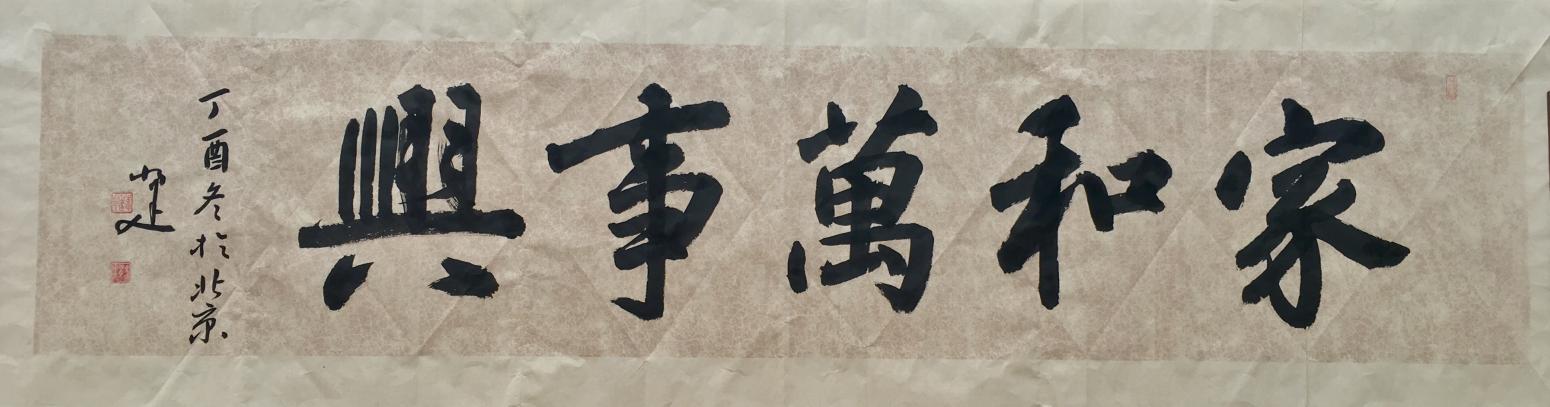 家和萬事興
丁酉冬於北京